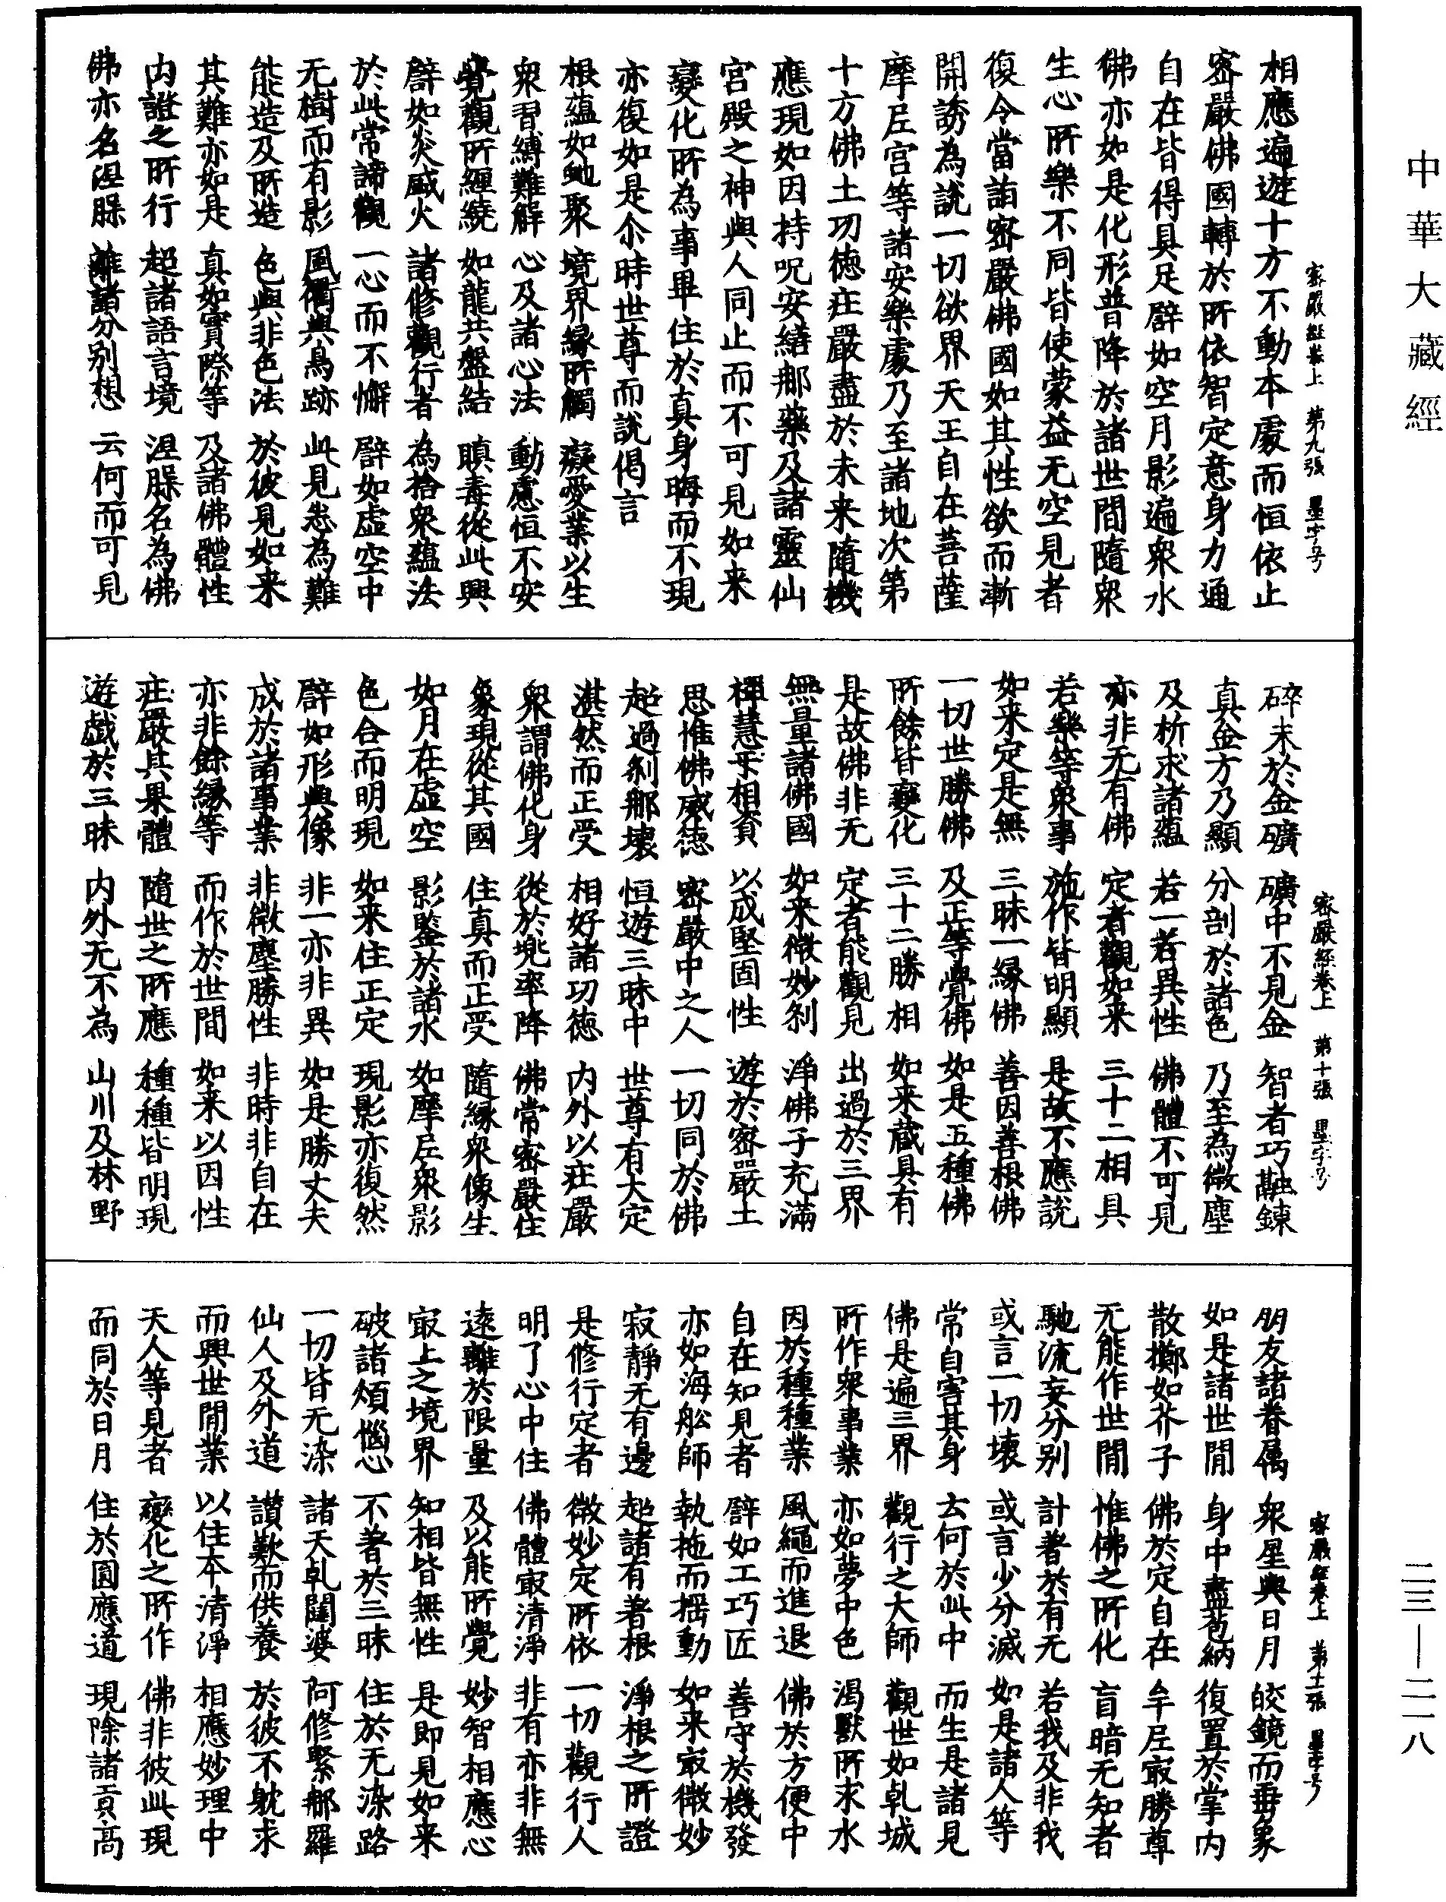 中華大藏經
密嚴經卷上　第九張　墨字号
相應遍遊十方不動本處而恒依止
密嚴佛國轉於所依智定意身力通
自在皆得具足譬如空月影遍衆水
佛亦如是化形普降於諸世間隨衆
生心所樂不同皆使蒙益无空見者
復令當詣密嚴佛國如其性欲而漸
開誘為說一切欲界天王自在菩薩
摩尼宮等諸安樂處乃至諸地次第
十方佛土功德莊嚴盡於未来隨機
應現如因持呪安繕那藥及諸靈仙
宮殿之神與人同止而不可見如来
變化所為事畢住於真身晦而不現
亦復如是尒時世尊而說偈言
根蘊如虵聚　境界緣所觸　癡愛業以生
衆習縛難解　心及諸心法　動慮恒不安
覺觀所纒繞　如龍共盤結　瞋毒從此興
譬如炎威火　諸修觀行者　為捨衆蘊法
於此常諦觀　一心而不懈　譬如虛空中
无樹而有影　風衢與鳥跡　此見悉為難
能造及所造　色與非色法　於彼見如来
其難亦如是　真如實際等　及諸佛體性
内證之所行　超諸語言境　涅槃名為佛
佛亦名涅槃　離諸分別想　云何而可見
密嚴經卷上　第十張　墨字号
碎末於金礦　礦中不見金　智者巧融鍊
真金方乃顯　分剖於諸色　乃至為微塵
及析求諸蘊　若一若異性　佛體不可見
亦非无有佛　定者觀如来　三十二相具
若樂等衆事　施作皆明顯　是故不應說
如来定是無　三昧一緣佛　善因善根佛
一切世勝佛　及正等覺佛　如是五種佛
所餘皆變化　三十二勝相　如来藏具有
是故佛非无　定者能觀見　出過於三界
無量諸佛國　如来微妙剎　淨佛子充滿
禪慧乎相資　以成堅固性　遊於密嚴土
思惟佛威德　密嚴中之人　一切同於佛
超過剎那壞　恒遊三昧中　世尊有大定
湛然而正受　相好諸功德　内外以莊嚴
衆謂佛化身　從於兜率降　佛常密嚴住
象現從其國　住真而正受　隨緣衆像生
如月在虛空　影鑒於諸水　如摩尼衆影
色合而明現　如来住正定　現影亦復然
譬如形與像　非一亦非異　如是勝丈夫
成於諸事業　非微塵勝性　非時非自在
亦非餘緣等　而作於世間　如来以因性
莊嚴其果體　隨世之所應　種種皆明現
遊戲於三昧　内外无不為　山川及林野
密嚴經卷上　第十一張　墨字号
朋友諸眷属　衆星與日月　皎鏡而垂象
如是諸世間　身中盡苞納　復置於掌内
散擲如芥子　佛於定自在　牟尼寂勝尊
无能作世間　惟佛之所化　盲暗无知者
馳流妄分別　計著於有无　若我及非我
或言一切壞　或言少分滅　如是諸人等
常自害其身　去何於此中　而生是諸見
佛是遍三界　觀行之大師　觀世如乹城
所作衆事業　亦如夢中色　渴獸所求水
因於種種業　風繩而進退　佛於方便中
自在知見者　譬如工巧匠　善守於機發
亦如海舩師　執拖而搖動　如来寂微妙
寂靜无有邊　超諸有著根　淨根之所證
是修行定者　微妙定所依　一切觀行人
明了心中住　佛體寂清淨　非有亦非無
遠離於限量　及以能所覺　妙智相應心
寂上之境界　知相皆無性　是即見如来
破諸煩惱心　不著於三昧　住於无染路
一切皆无染　諸天乹闥婆　阿修緊那羅
仙人及外道　讚歎而供養　於彼不躭求
而興世間業　以住本清淨　相應妙理中
天人等見者　變化之所作　佛非彼此現
而同於日月　住於圓應道　現除諸貢高
二三—二一八